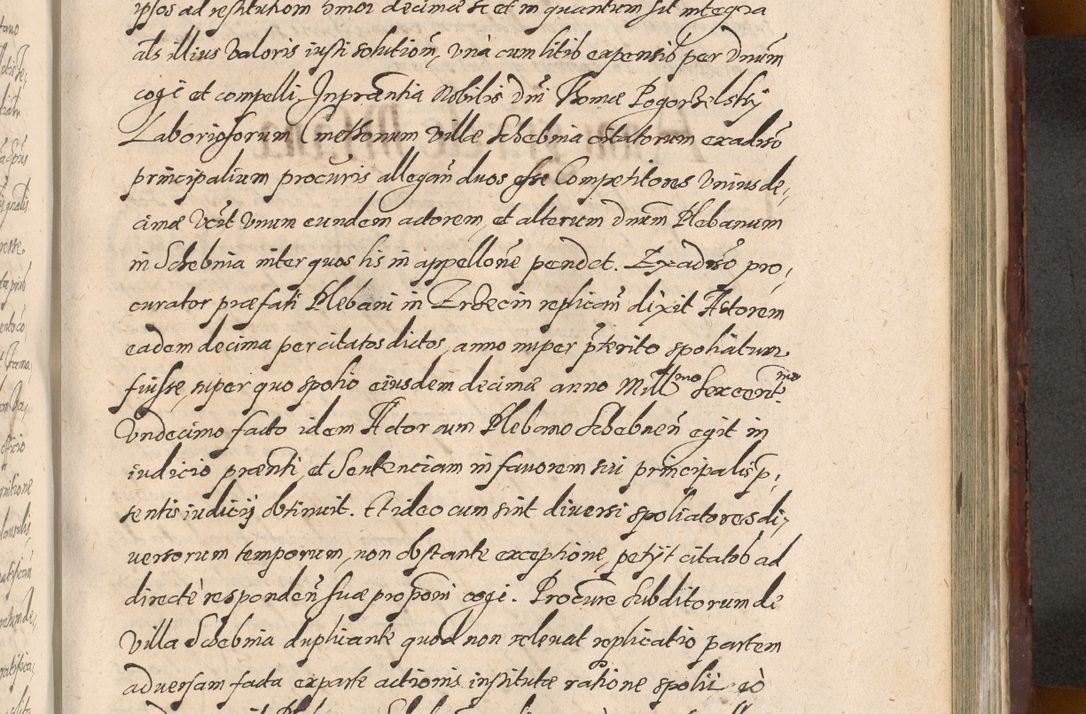 ipsos ad restitutionem hmoi decimæ si et in quantum sit integra
als illius valoris iusti solutioñ, unà cum litib expensiõ per dnum
cogi et compelli. In præntia Nobilis dni Thomæ Pogorzelskÿ
Laboriosorum Cmethonum villæ Schebnia citatorum ex adũso
principalium procuris allegañ duos esse Competitores unius de,
cimæ vczt unum eundem actorem, et alterum dnum Plebanum
in Schebnia inter quos lis in appellõne pendet. Ex adũso pro,
curator præfati Plebani in Zrdecin replicañ dixit Actorem
eadem decima per citatos dictos, anno nuper ꝑterito spoliatum
fuisse, super quo spolio eiusdem decimæ anno Mill mo sexcent mo
undecimo facto idem Actor cum Plebano Schebneñ egit in
iudicio prænti, et Sentenciam in favorem sui principalis p,
sentis iudicij obtinuit. Et ideo cum sint diversi spoliatores di,
versorum temporum, non obstante exceptione, petijt citatos ad
directè respondeñ suæ proponi cogi. Procure subditorum de
villa Schebnia duplicante quod non relevat replicatio partem
adversam facta ex parte actionis institutæ ratione spolij eò